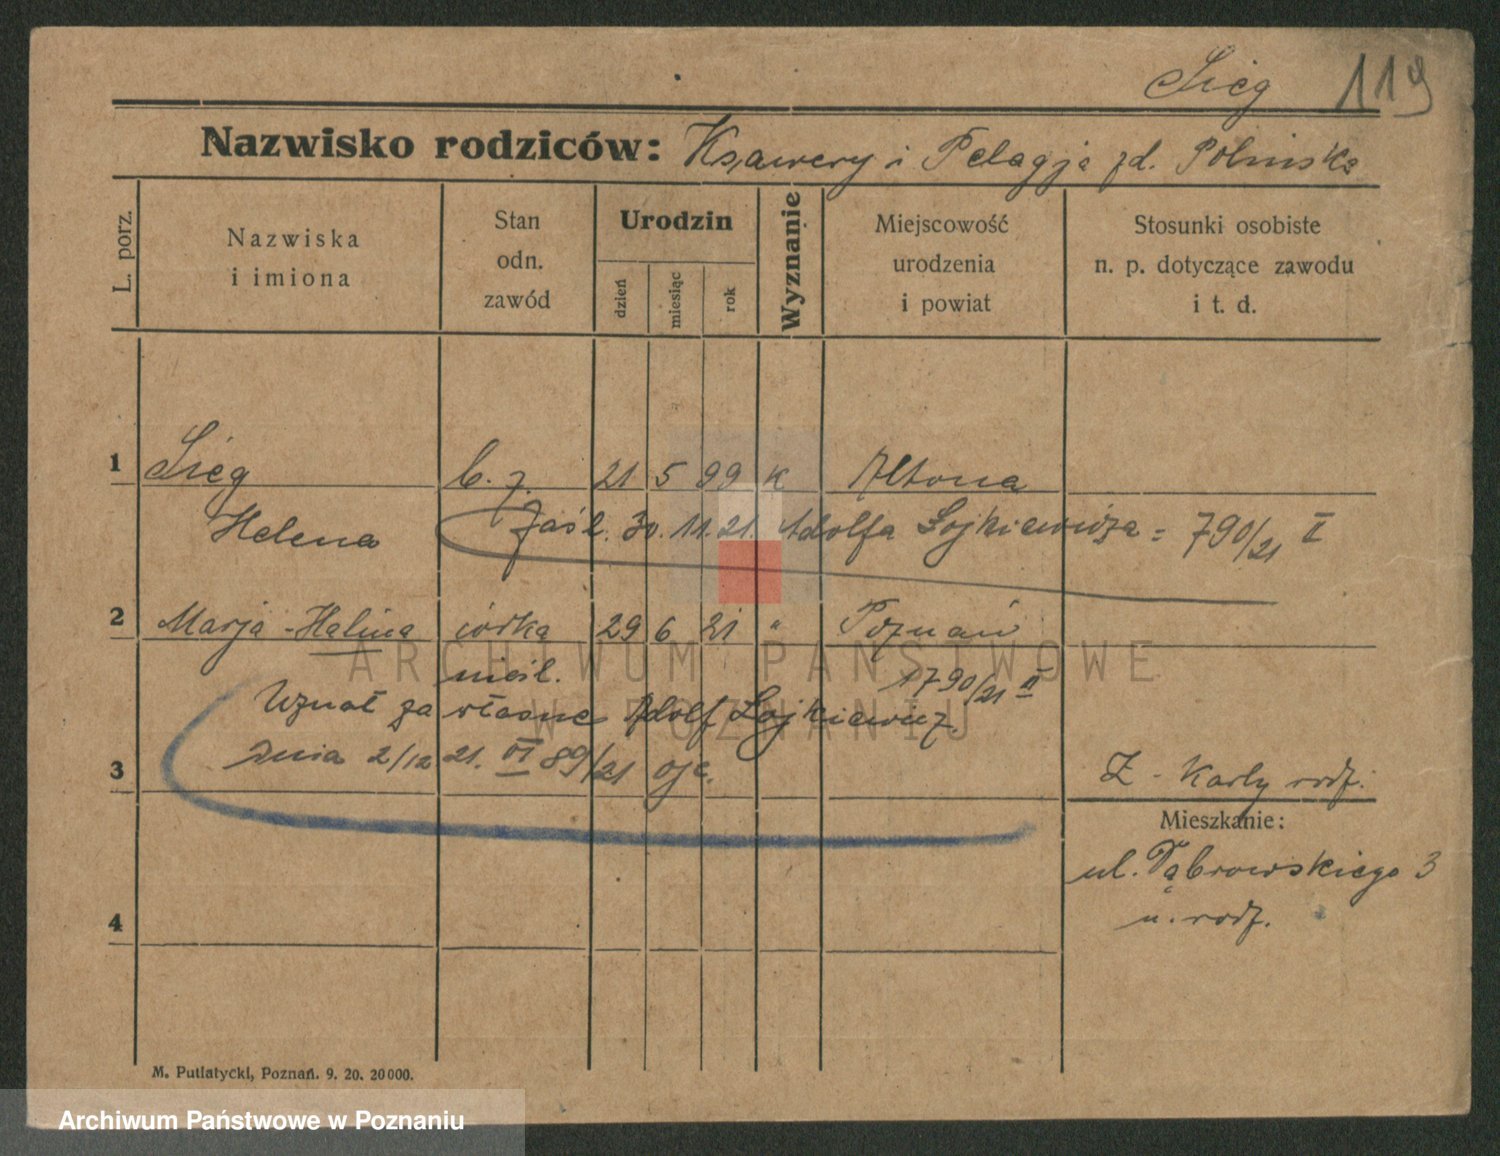 Sieg 119
Nazwisko rodziców: Ksawery i Pelagja zd. Polińska
L. porz.
Nazwiska
i imiona
Stan
odn.
zawód
Urodzin
dzień
miesiąc
rok
Wyznanie
Miejscowość
urodzenia
i powiat
Stosunki osobiste
n. p. dotyczące zawodu
i t. d.
1 Sieg b. z. 21 5 99 k Altona
Helena Zaśl. 30.11.21. Adolfa Łojkiewicza = 790/21 II
2 Marja-Halina córka 29 6 21 " Poznań
nieśl. 1790/21 II
Uznał za własne Adolf Łojkiewicz
3 dnia 2/12 21. VI 89/21 ojc.
Z-Karty rodz.
Mieszkanie:
ul. Dąbrowskiego 3
u. rodz.
4
M. Putiatycki, Poznań. 9. 20. 20000.
ARCHIWUM PAŃSTWOWE
W POZNANIU
Archiwum Państwowe w Poznaniu